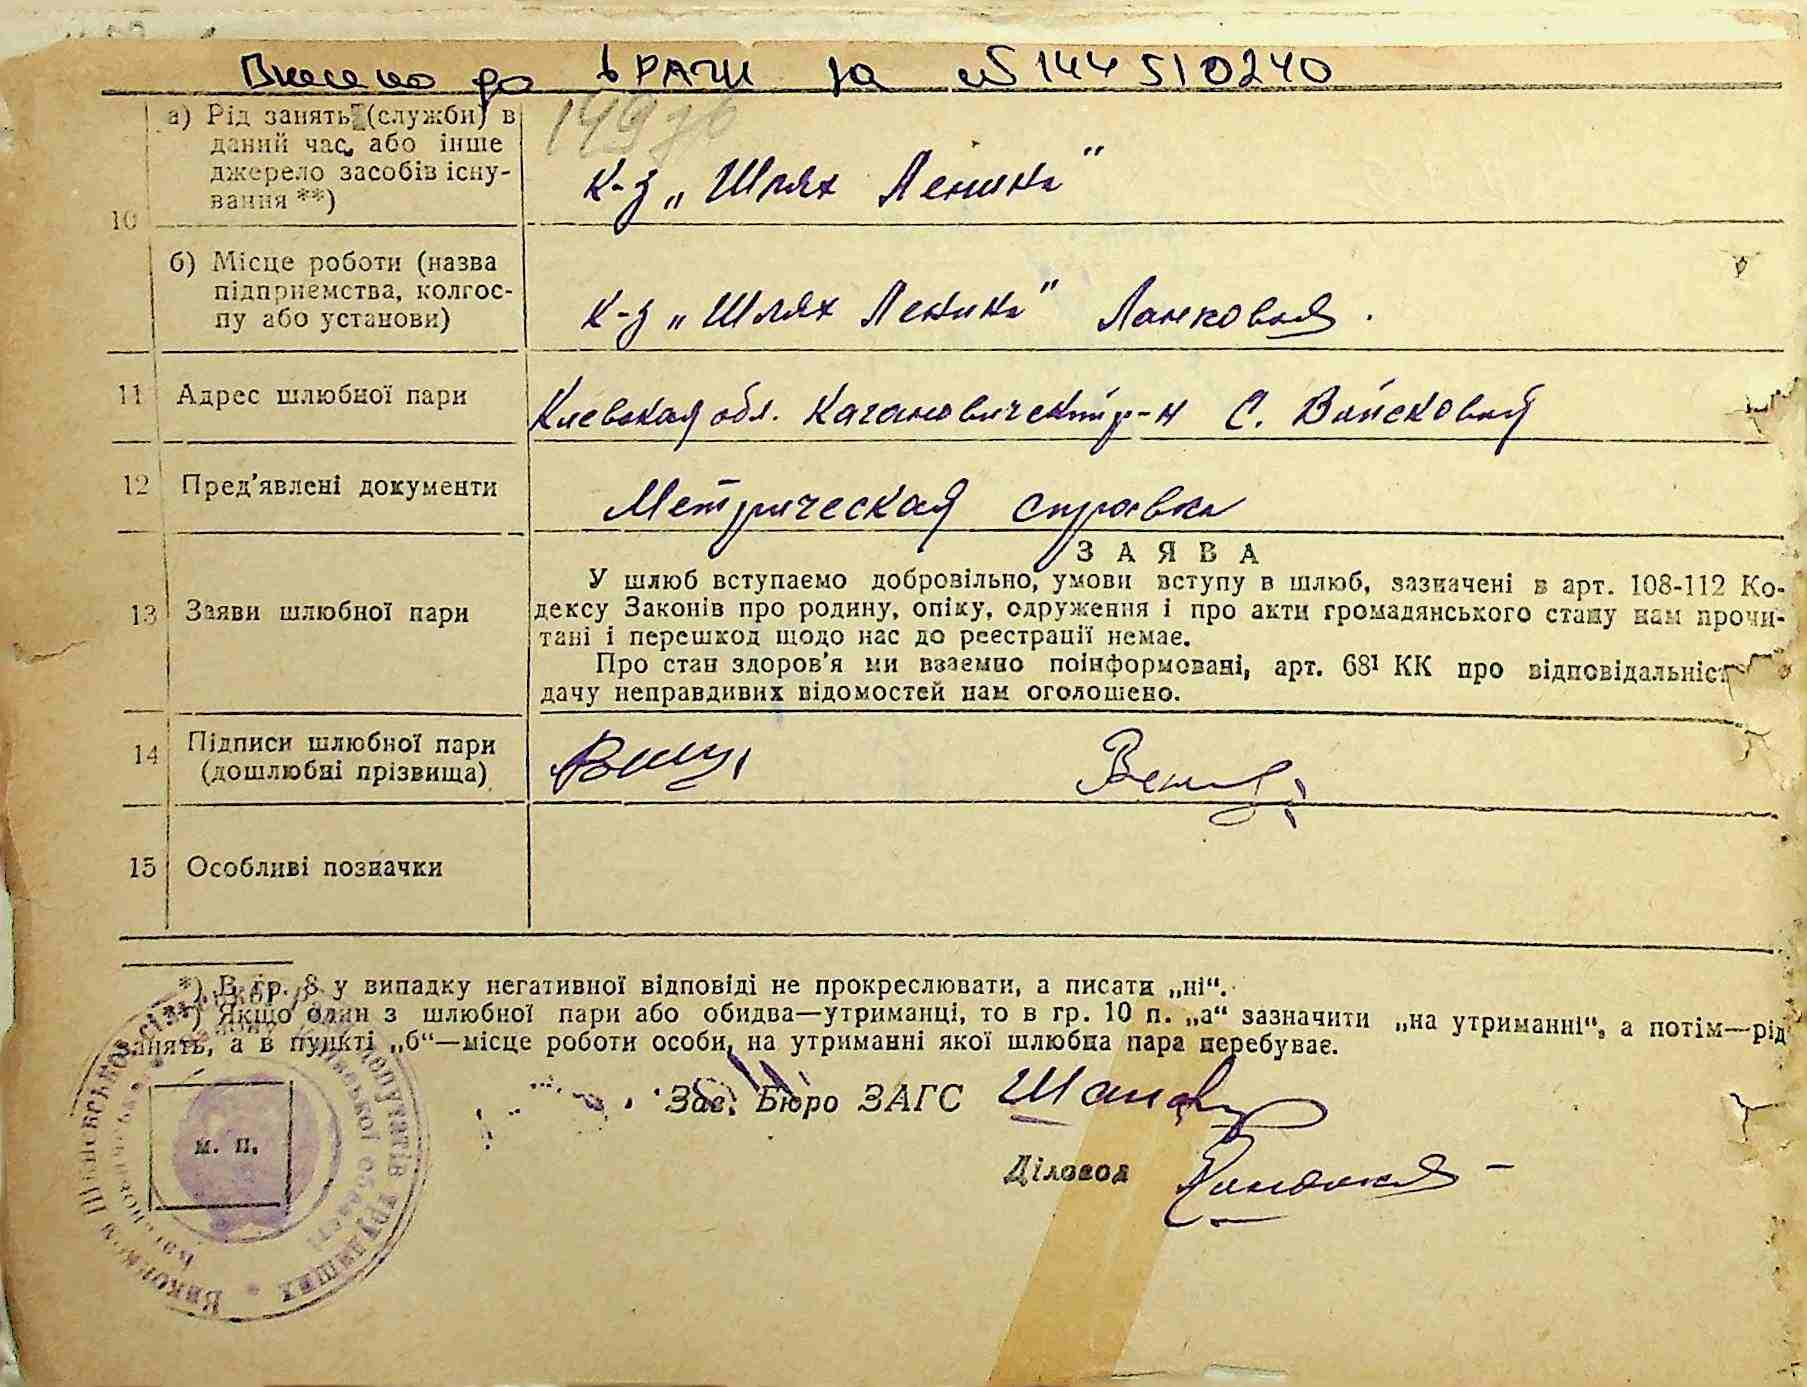 Внесено до ДРАЦГ за № 144510240
149зв
а) Рід занять (служби) в
даний час, або інше
джерело засобів існу-
вання **)
к-з „Шлях Ленина"
10
б) Місце роботи (назва
підприємства, колгос-
пу або установи)
к-з „Шлях Ленина" Ланковая.
11 Адрес шлюбної пари
Киевская обл. Кагановический р-н С. Войсковый
12 Пред'явлені документи
Метрическая справка
13 Заяви шлюбної пари
ЗАЯВА
У шлюб вступаємо добровільно, умови вступу в шлюб, зазначені в арт. 108-112 Ко-
дексу Законів про родину, опіку, одруження і про акти громадянського стану нам прочи-
тані і перешкод щодо нас до реєстрації немає.
Про стан здоров'я ми взаємно поінформовані, арт. 68¹ КК про відповідальніст
дачу неправдивих відомостей нам оголошено.
14 Підписи шлюбної пари
(дошлюбні прізвища)
15 Особливі позначки
*) В гр. 8 у випадку негативної відповіді не прокреслювати, а писати „ні“.
) Якщо один з шлюбної пари або обидва—утриманці, то в гр. 10 п. „а“ зазначити „на утриманні“, а потім—рід
занять, а в пункті „б“—місце роботи особи, на утриманні якої шлюбна пара перебуває.
Зав. Бюро ЗАГС
Діловод
м. п.
Виконком
депутатів трудящих
області